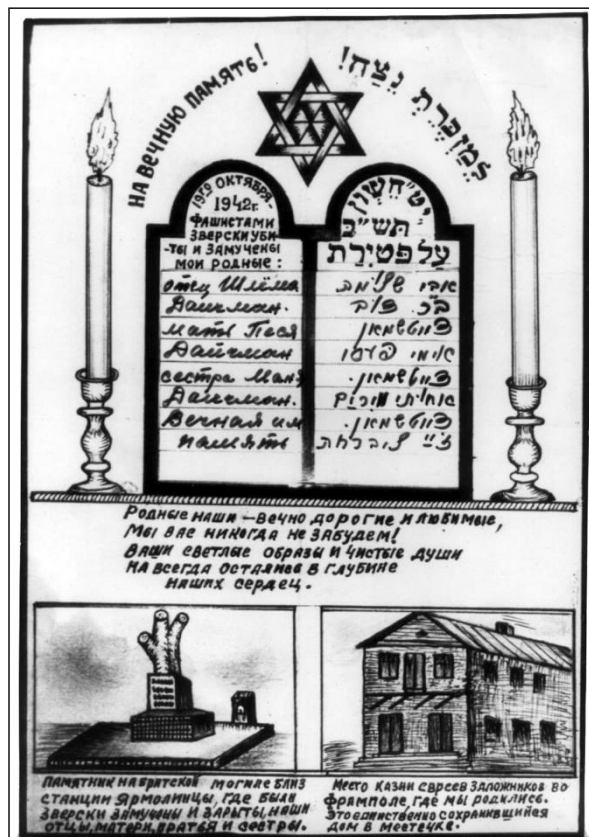 НА ВЕЧНУЮ ПАМЯТЬ!
לְמַזְכֶּרֶת נֶצַח!
19ГО ОКТЯБРЯ-
1942г.
ФАШИСТАМИ
ЗВЕРСКИ УБИ-
-ТЫ И ЗАМУЧЕНЫ
МОИ РОДНЫЕ:
отец Шлёма
Дайчман.
мать Песя
Дайчман.
сестра Маня
Дайчман.
Вечная им
память
יט״חשון
תש״ב
על פטירת
אבי שלימה
דויטשמאן
אימי
דויטשמאן.
אחותי מרים
דויטשמאן.
РОДНЫЕ НАШИ — ВЕЧНО ДОРОГИЕ И ЛЮБИМЫЕ,
МЫ ВАС НИКОГДА НЕ ЗАБУДЕМ!
ВАШИ СВЕТЛЫЕ ОБРАЗЫ И ЧИСТЫЕ ДУШИ
НА ВСЕГДА ОСТАЛИСЬ В ГЛУБИНЕ
НАШИХ СЕРДЕЦ.
ПАМЯТНИК НА БРАТСКОЙ МОГИЛЕ БЛИЗ
СТАНЦИИ ЯРМОЛИНЦЫ, ГДЕ БЫЛИ
ЗВЕРСКИ ЗАМУЧЕНЫ И ЗАРЫТЫ, НАШИ
ОТЦЫ, МАТЕРИ, БРАТЬЯ И СЕСТРЫ.
МЕСТО КАЗНИ ЕВРЕЕВ ЗАЛОЖНИКОВ ВО
ФРАМПОЛЕ, ГДЕ МЫ РОДИЛИСЬ.
ЭТО ЕДИНСТВЕННО СОХРАНИВШИЙСЯ
ДОМ В МЕСТЕЧКЕ.